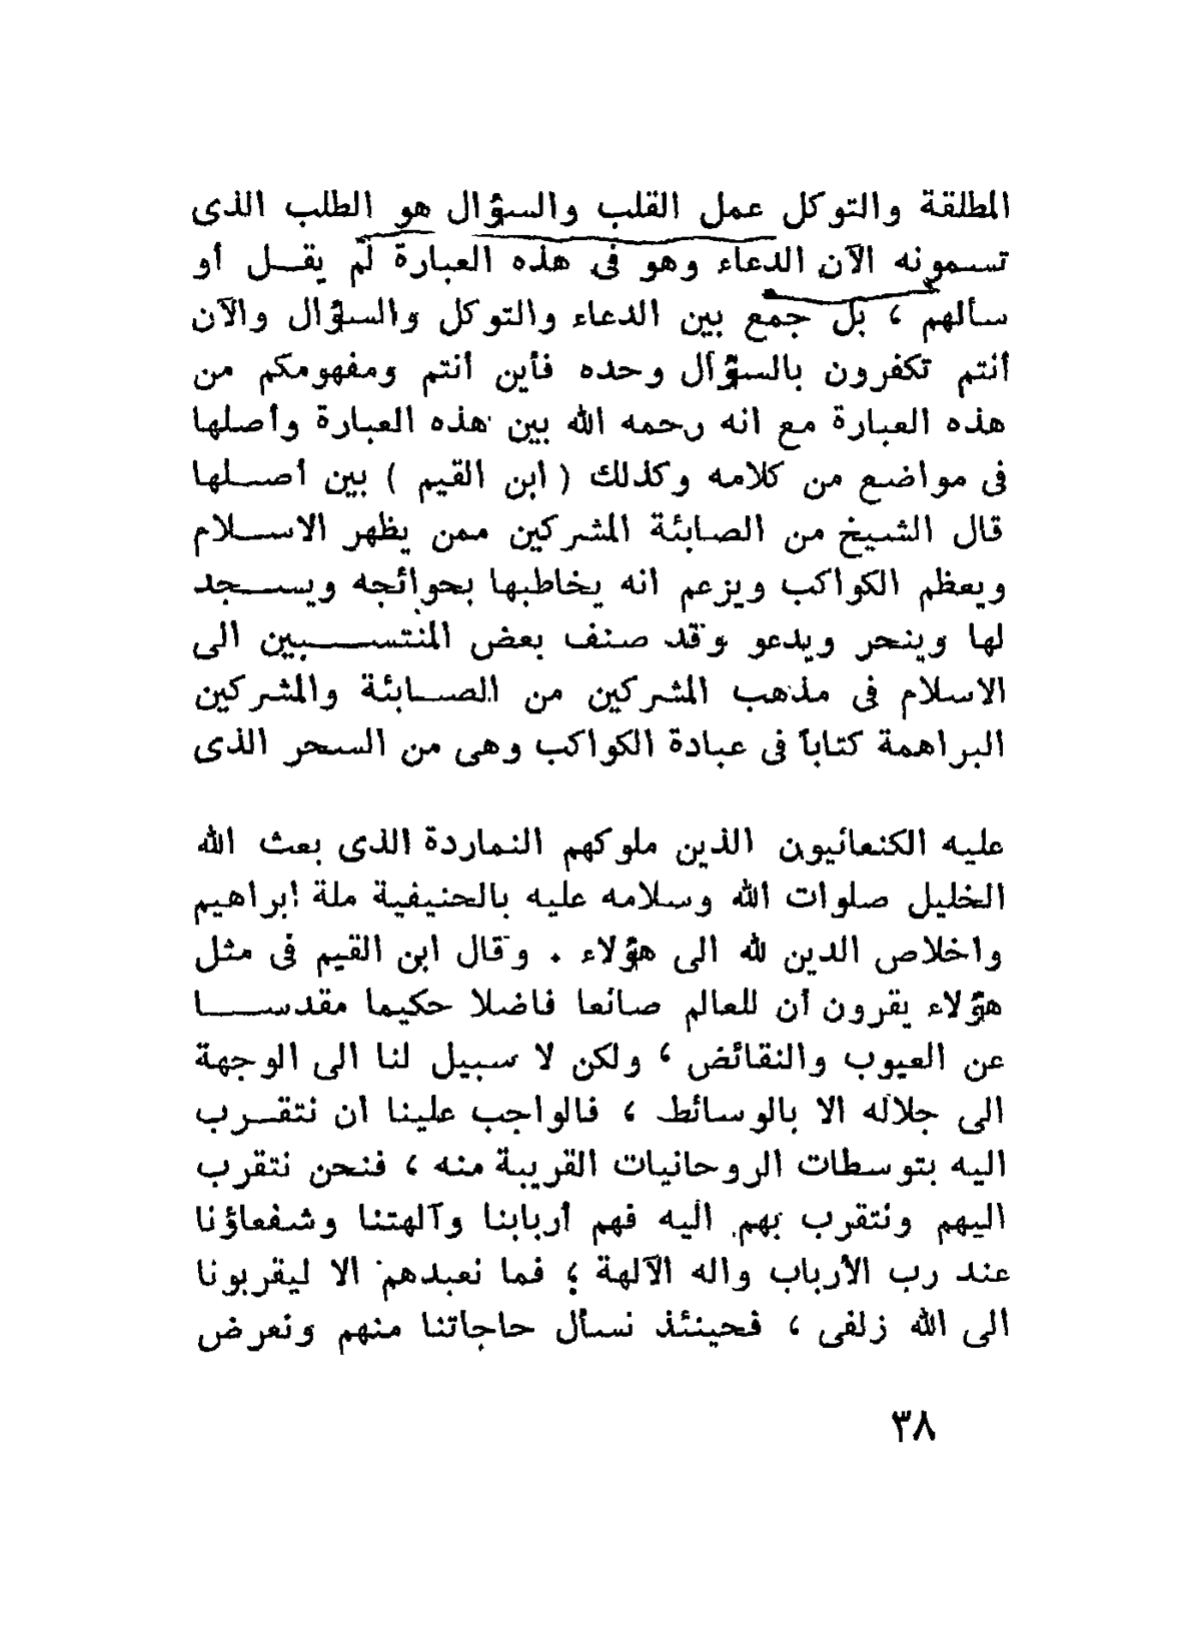 المطلقة والتوكل عمل القلب والسؤال هو الطلب الذى
تسمونه الآن الدعاء وهو فى هذه العبارة لم يقل أو
سألهم ، بل جمع بين الدعاء والتوكل والسؤال والآن
أنتم تكفرون بالسؤال وحده فأين أنتم ومفهومكم من
هذه العبارة مع انه رحمه الله بين هذه العبارة وأصلها
فى مواضع من كلامه وكذلك ( ابن القيم ) بين أصلها
قال الشيخ من الصابئة المشركين ممن يظهر الاسلام
ويعظم الكواكب ويزعم انه يخاطبها بحوائجه ويسجد
لها وينحر ويدعو وقد صنف بعض المنتسبين الى
الاسلام فى مذهب المشركين من الصابئة والمشركين
البراهمة كتاباً فى عبادة الكواكب وهى من السحر الذى
عليه الكنعانيون الذين ملوكهم النماردة الذى بعث الله
الخليل صلوات الله وسلامه عليه بالحنيفية ملة ابراهيم
واخلاص الدين لله الى هؤلاء . وقال ابن القيم فى مثل
هؤلاء يقرون أن للعالم صانعا فاضلا حكيما مقدسا
عن العيوب والنقائض ، ولكن لا سبيل لنا الى الوجهة
الى جلاله الا بالوسائط ، فالواجب علينا ان نتقرب
اليه بتوسطات الروحانيات القريبة منه ، فنحن نتقرب
اليهم ونتقرب بهم اليه فهم أربابنا وآلهتنا وشفعاؤنا
عند رب الأرباب واله الآلهة ؛ فما نعبدهم الا ليقربونا
الى الله زلفى ، فحينئذ نسأل حاجاتنا منهم ونعرض
٣٨